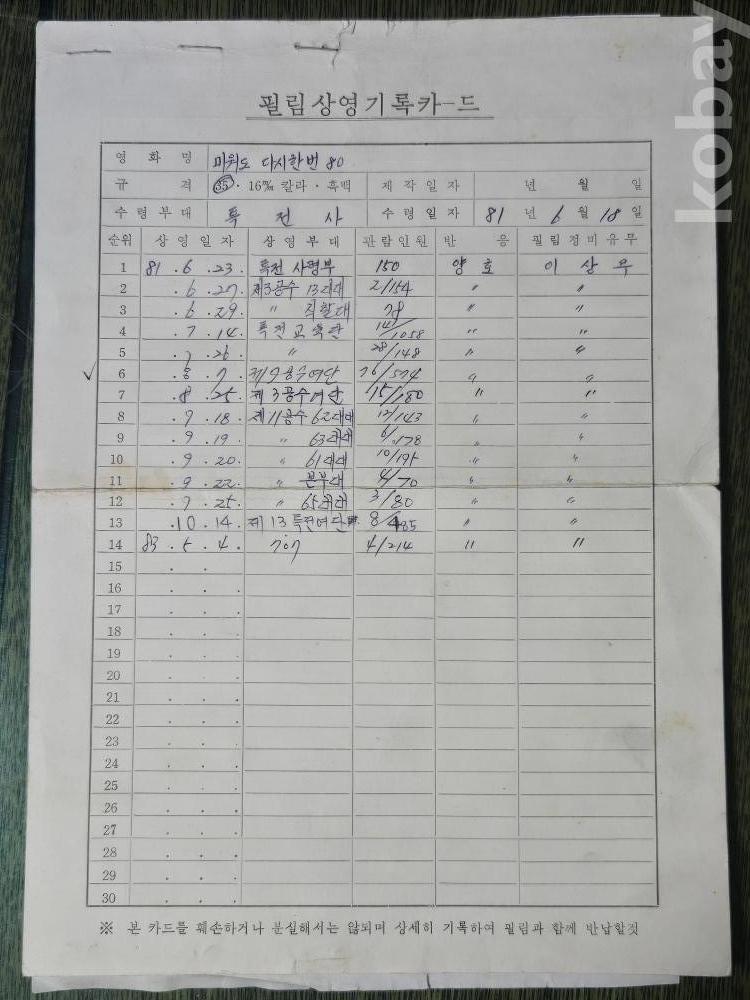 kobay
필림상영기록카-드
영화명 미워도 다시한번 80
규격 35·16%칼라·흑백 제작일자 년 월 일
수령부대 특전사 수령일자 81년 6월 18일
순위 상영일자 상영부대 관람인원 반응 필림정비유무
1 81.6.23. 특전사령부 150 양호 이상무
2 .6.27. 제3공수 13대대 2/154 〃 〃
3 .6.29. 〃 직할대 78 〃 〃
4 .7.14. 특전교육단 14/1058 〃 〃
5 .7.26. 〃 28/148 〃 〃
6 .8.7. 제9공수여단 26/574 〃 〃
7 .8.25. 제3공수여단 15/180 〃 〃
8 .9.18. 제11공수 62대대 12/143 〃 〃
9 .9.19. 〃 63대대 6/178 〃 〃
10 .9.20. 〃 61대대 10/195 〃 〃
11 .9.22. 〃 본부대 4/70 〃 〃
12 .9.25. 〃 65대대 3/80 〃 〃
13 .10.14. 제13특전여단 8/485 〃 〃
14 83.5.4. 707 4/214 〃 〃
15 . . .
16 . . .
17 . . .
18 . . .
19 . . .
20 . . .
21 . . .
22 . . .
23 . . .
24 . . .
25 . . .
26 . . .
27 . . .
28 . . .
29 . . .
30 . . .
※ 본 카드를 훼손하거나 분실해서는 않되며 상세히 기록하여 필림과 함께 반납할것